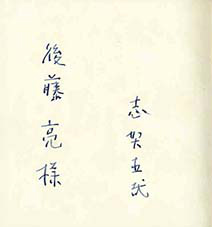 後藤亮様
志賀直哉